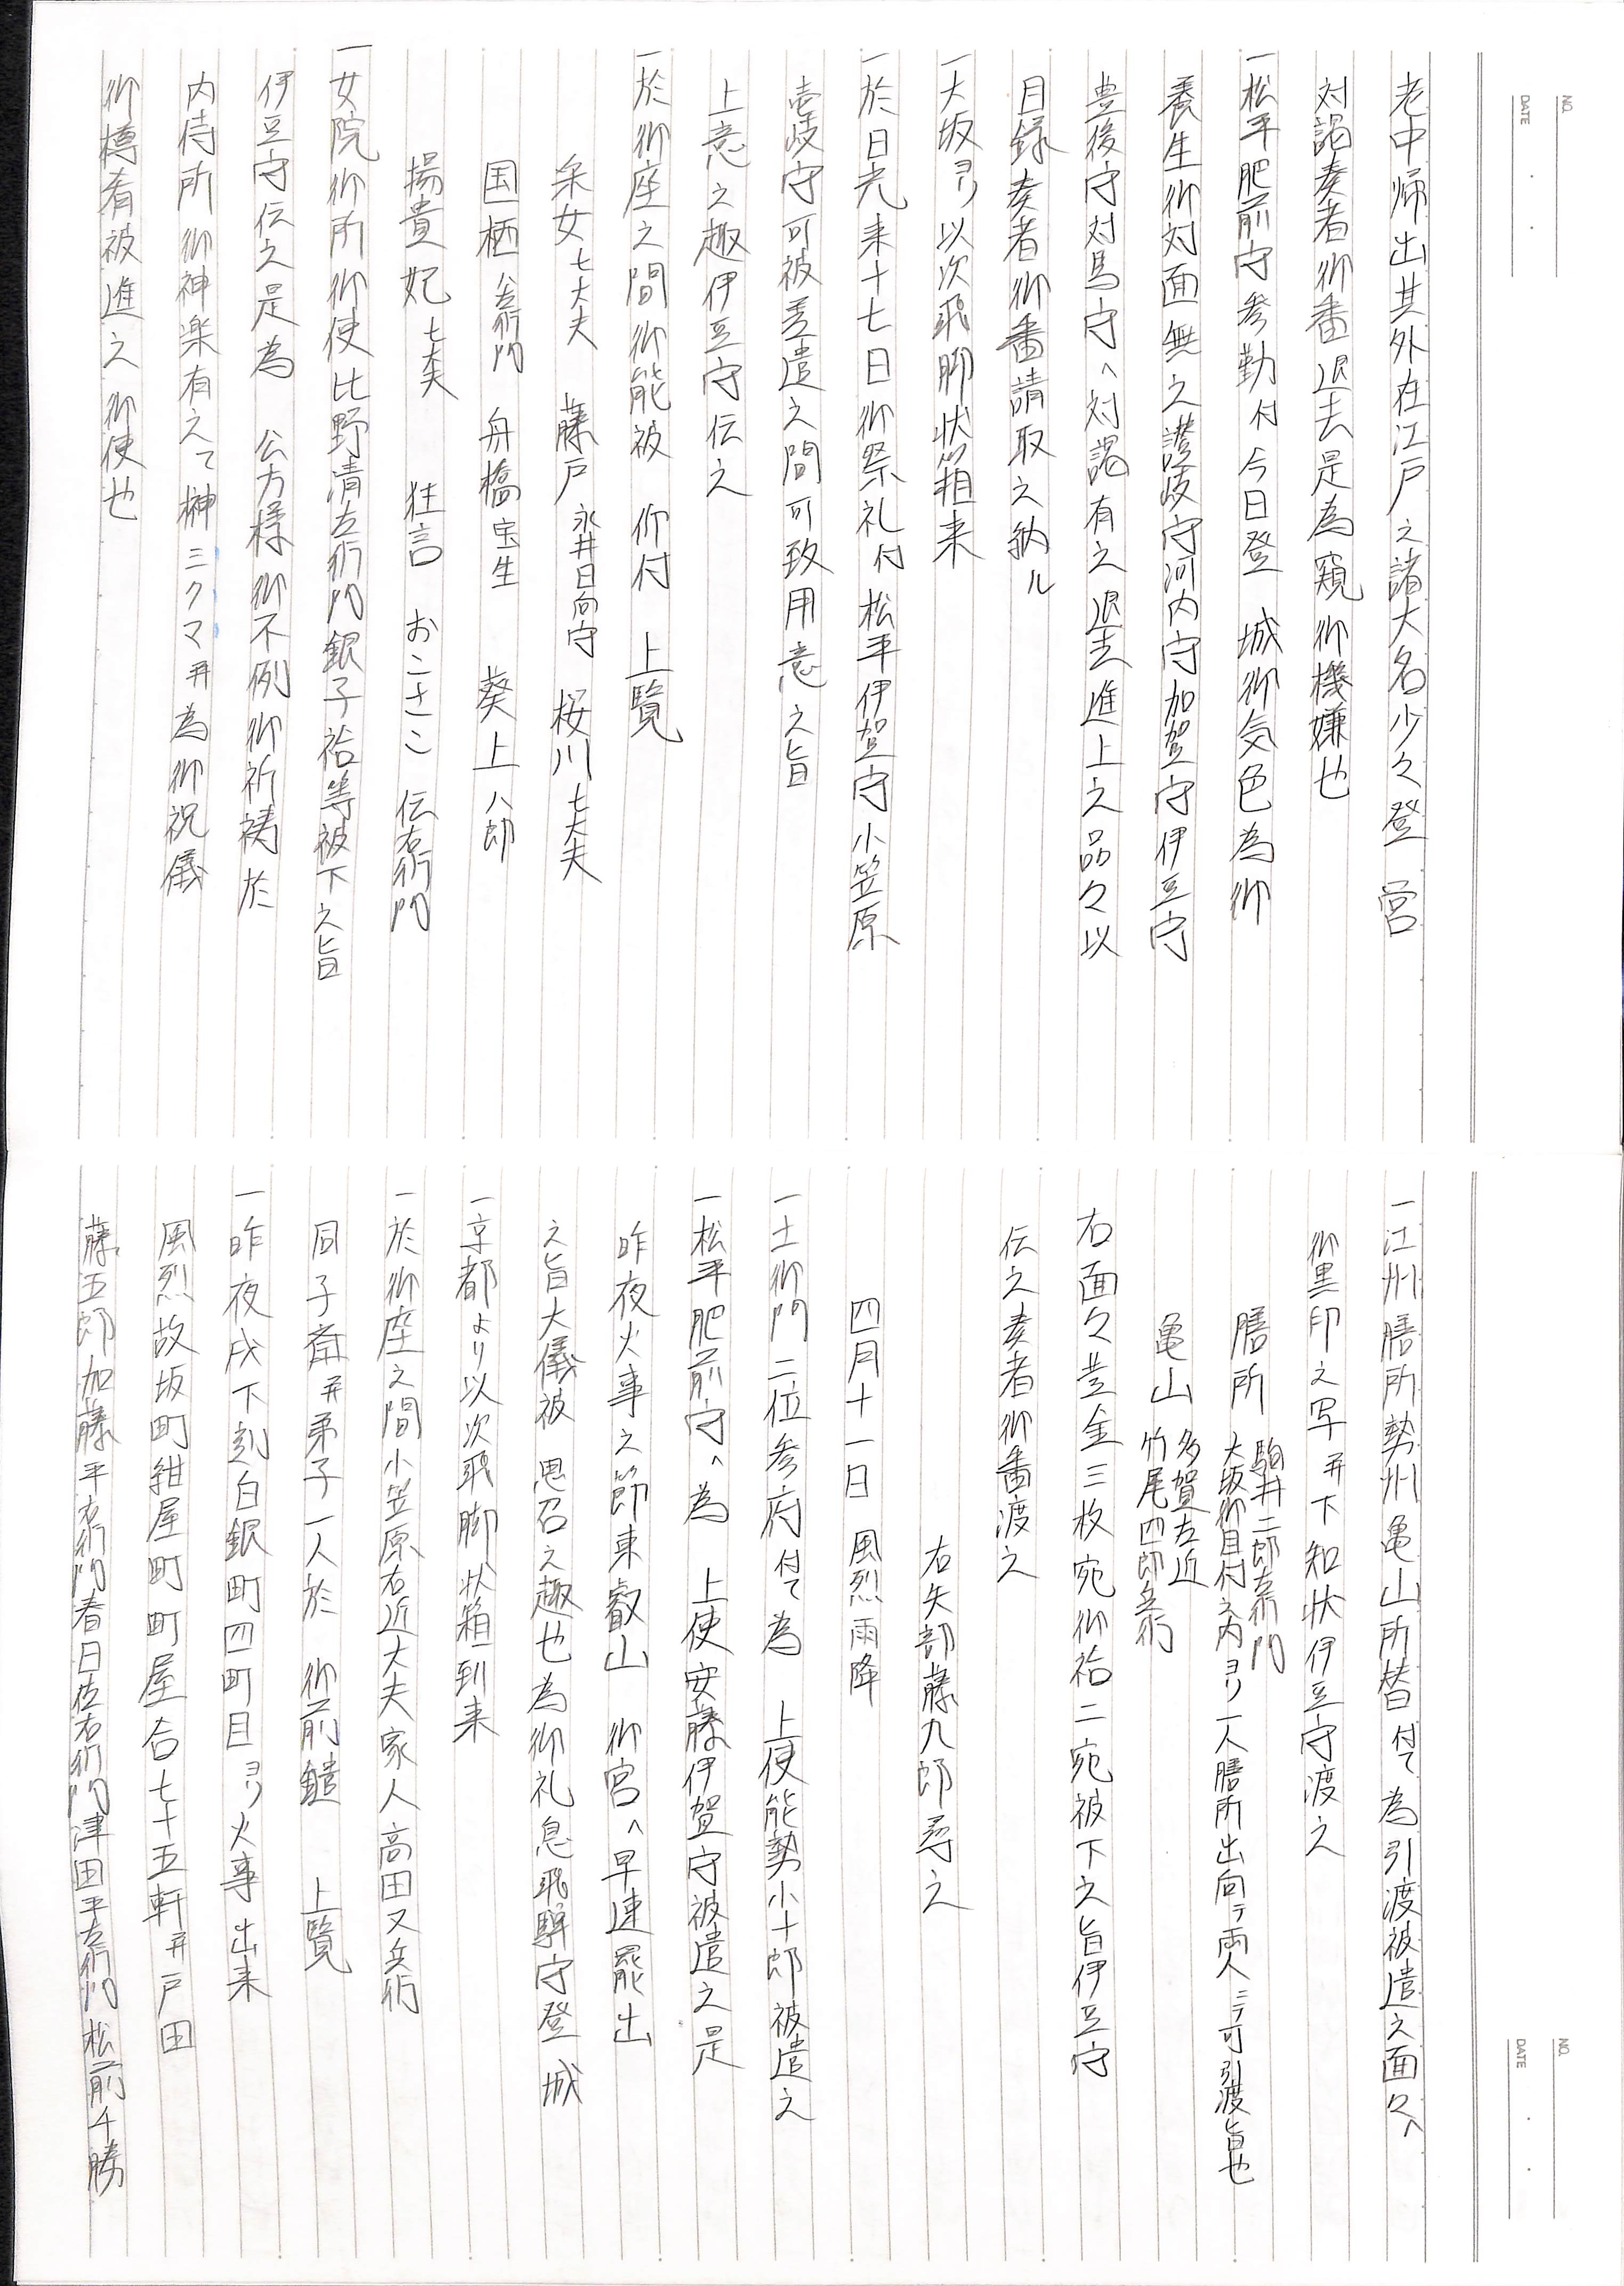 NO.
DATE
老中帰出其外在江戸之諸大名少々登　営
対謁奏者御番退去是為窺御機嫌也
一松平肥前守参勤付今日登　城御気色為御
養生御対面無之讃岐守河内守加賀守伊豆守
豊後守対馬守へ対謁有之退去進上之品々以
目録奏者御番請取之納ル
一大坂ヨリ以次飛脚状箱来
一於日光来十七日御祭礼付松平伊賀守小笠原
壱岐守可被差遣之間可致用意之旨
上意之趣伊豆守伝之
一於御座之間御能被　仰付　上覧
采女 七大夫　藤戸 永井日向守　桜川 七大夫
国栖 八左衛門　舟橋 宝生　葵上 八郎
揚貴妃 七大夫　狂言　おこさこ　伝右衛門
一女院御所御使比野清左衛門銀子袷等被下之旨
伊豆守伝之是為　公方様御不例御祈祷於
内侍所御神楽有之て榊ミクマ并為御祝儀
御樽肴被進之御使也
NO.
DATE
一江州膳所勢州亀山所替付て為引渡被遣之面々へ
御黒印之写并下知状伊豆守渡之
膳所　駒井二郎左衛門
大坂御目付之内ヨリ一人膳所出向テ両人ニテ可引渡旨也
亀山　多賀左近
竹尾四郎兵衛
右面々黄金三枚宛御袷二宛被下之旨伊豆守
伝之奏者御番渡之
右矢部藤九郎尋之
四月十一日　風烈雨降
一土御門二位参府付て為　上使能勢小十郎被遣之
一松平肥前守へ為　上使安藤伊賀守被遣之是
昨夜火事之節東叡山　御宮へ早速罷出
之旨大儀被　思召之趣也為御礼息飛騨守登　城
一京都より以次飛脚状箱到来
一於御座之間小笠原右近大夫家人高田又兵衛
同子斎并弟子一人於　御前鑓　上覧
一昨夜戌下刻白銀町四町目ヨリ火事出来
風烈故坂町紺屋町町屋合七十五軒并戸田
藤五郎加藤平右衛門春日佐右衛門津田平左衛門松前千勝